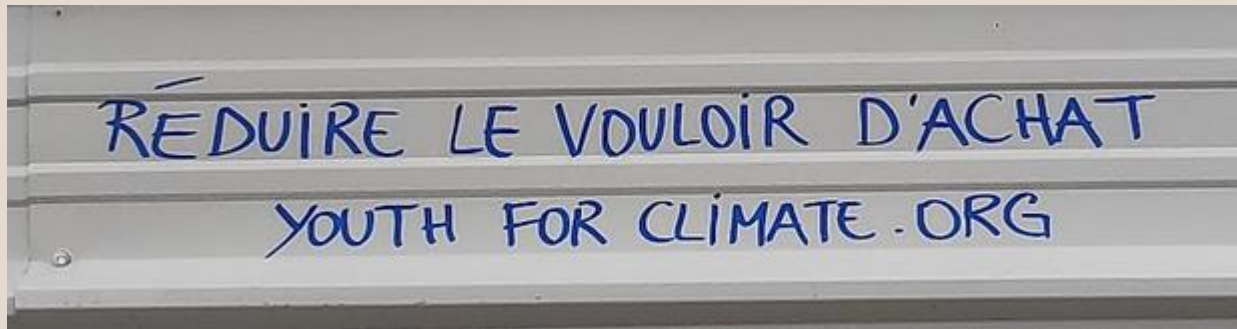 RÉDUIRE LE VOULOIR D'ACHAT
YOUTH FOR CLIMATE.ORG